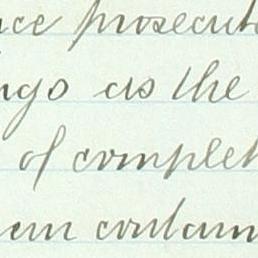 nce prosecut
ngs as the
of complet
em contain